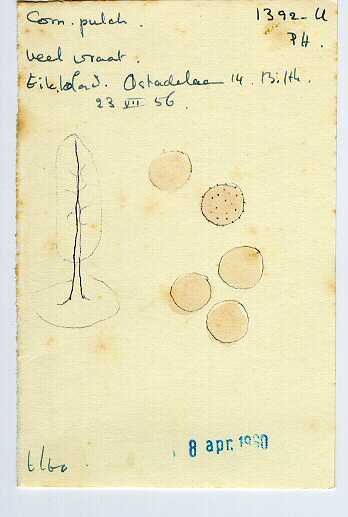 Com. pulch. 1392-U
PH.
veel vraat.
Eikblad. Ostadelaan 14. Bilth.
23 VII 56.
6/60
8 apr. 1960